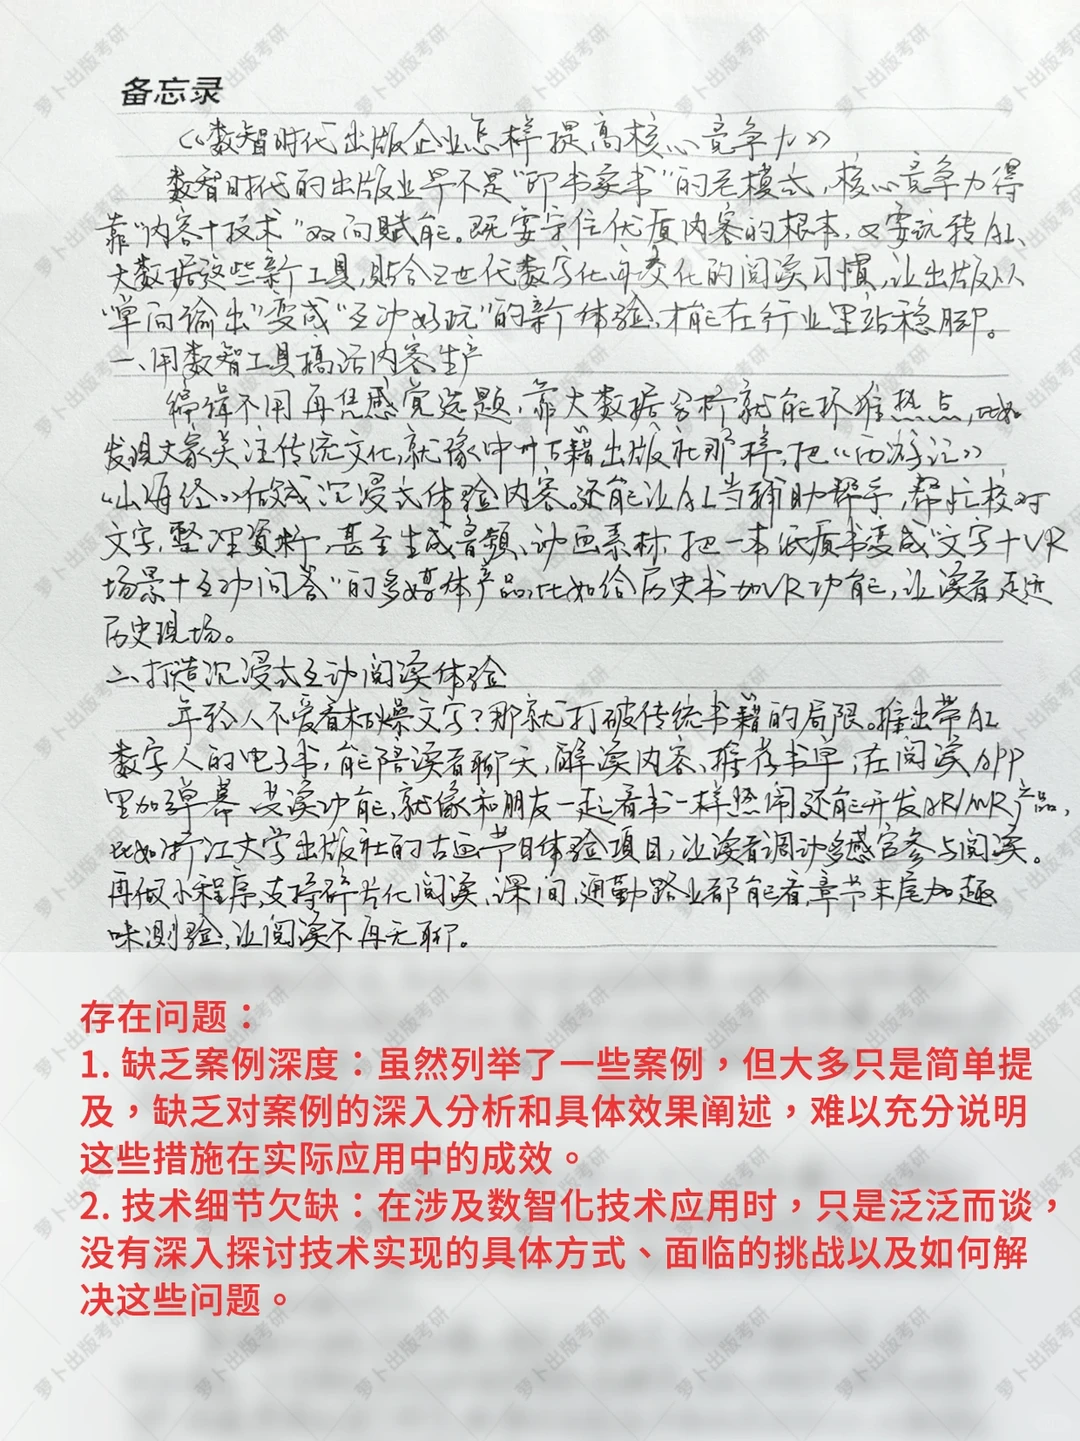 备忘录
《数智时代出版企业怎样提高核心竞争力》
数智时代的出版业早不是“印书卖书”的老模式，核心竞争力得
靠“内容+技术”双向赋能。既要守住优质内容的根本，又要玩转AI、
大数据这些新工具，贴合Z世代数字化年交化的阅读习惯，让出版从
“单向输出”变成“互动好玩”的新体验，才能在行业里站稳脚。
一、用数智工具搞活内容生产
编辑不用再凭感觉选题，靠大数据分析就能抓准热点，比如
发现大家关注传统文化，就像中州古籍出版社那样，把《西游记》
《山海经》做成沉浸式体验内容。还能让AI当辅助帮手，帮忙校对
文字，整理资料，甚至生成音频、动画素材，把一本纸质书变成“文字+VR
场景+互动问答”的多媒体产品，比如给历史书加VR功能，让读者走进
历史现场。
二、打造沉浸式互动阅读体验
年轻人不爱看枯燥文字？那就打破传统书籍的局限。推出带AI
数字人的电子书，能陪读者聊天，解读内容、推荐书单；在阅读APP
里加弹幕、共读功能，就像和朋友一起看书一样热闹，还能开发AR/MR产品，
比如浙江大学出版社的古画节目体验项目，让读者调动多感官参与阅读。
再做小程序，支持碎片化阅读，课间、通勤路上都能看，章节末尾加趣
味测验，让阅读不再无聊。
存在问题：
1. 缺乏案例深度：虽然列举了一些案例，但大多只是简单提
及，缺乏对案例的深入分析和具体效果阐述，难以充分说明
这些措施在实际应用中的成效。
2. 技术细节欠缺：在涉及数智化技术应用时，只是泛泛而谈，
没有深入探讨技术实现的具体方式、面临的挑战以及如何解
决这些问题。
萝卜出版考研